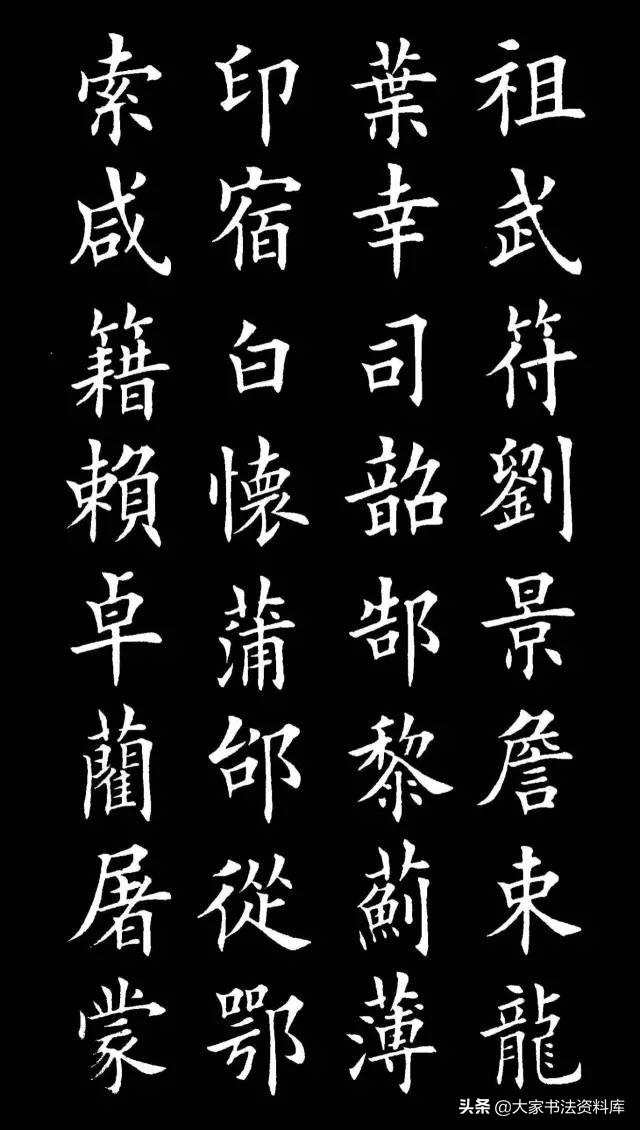 祖武符劉景詹束龍
葉幸司韶郜黎薊薄
印宿白懷蒲邰從鄂
索咸籍賴卓藺屠蒙
头条 @大家书法资料库